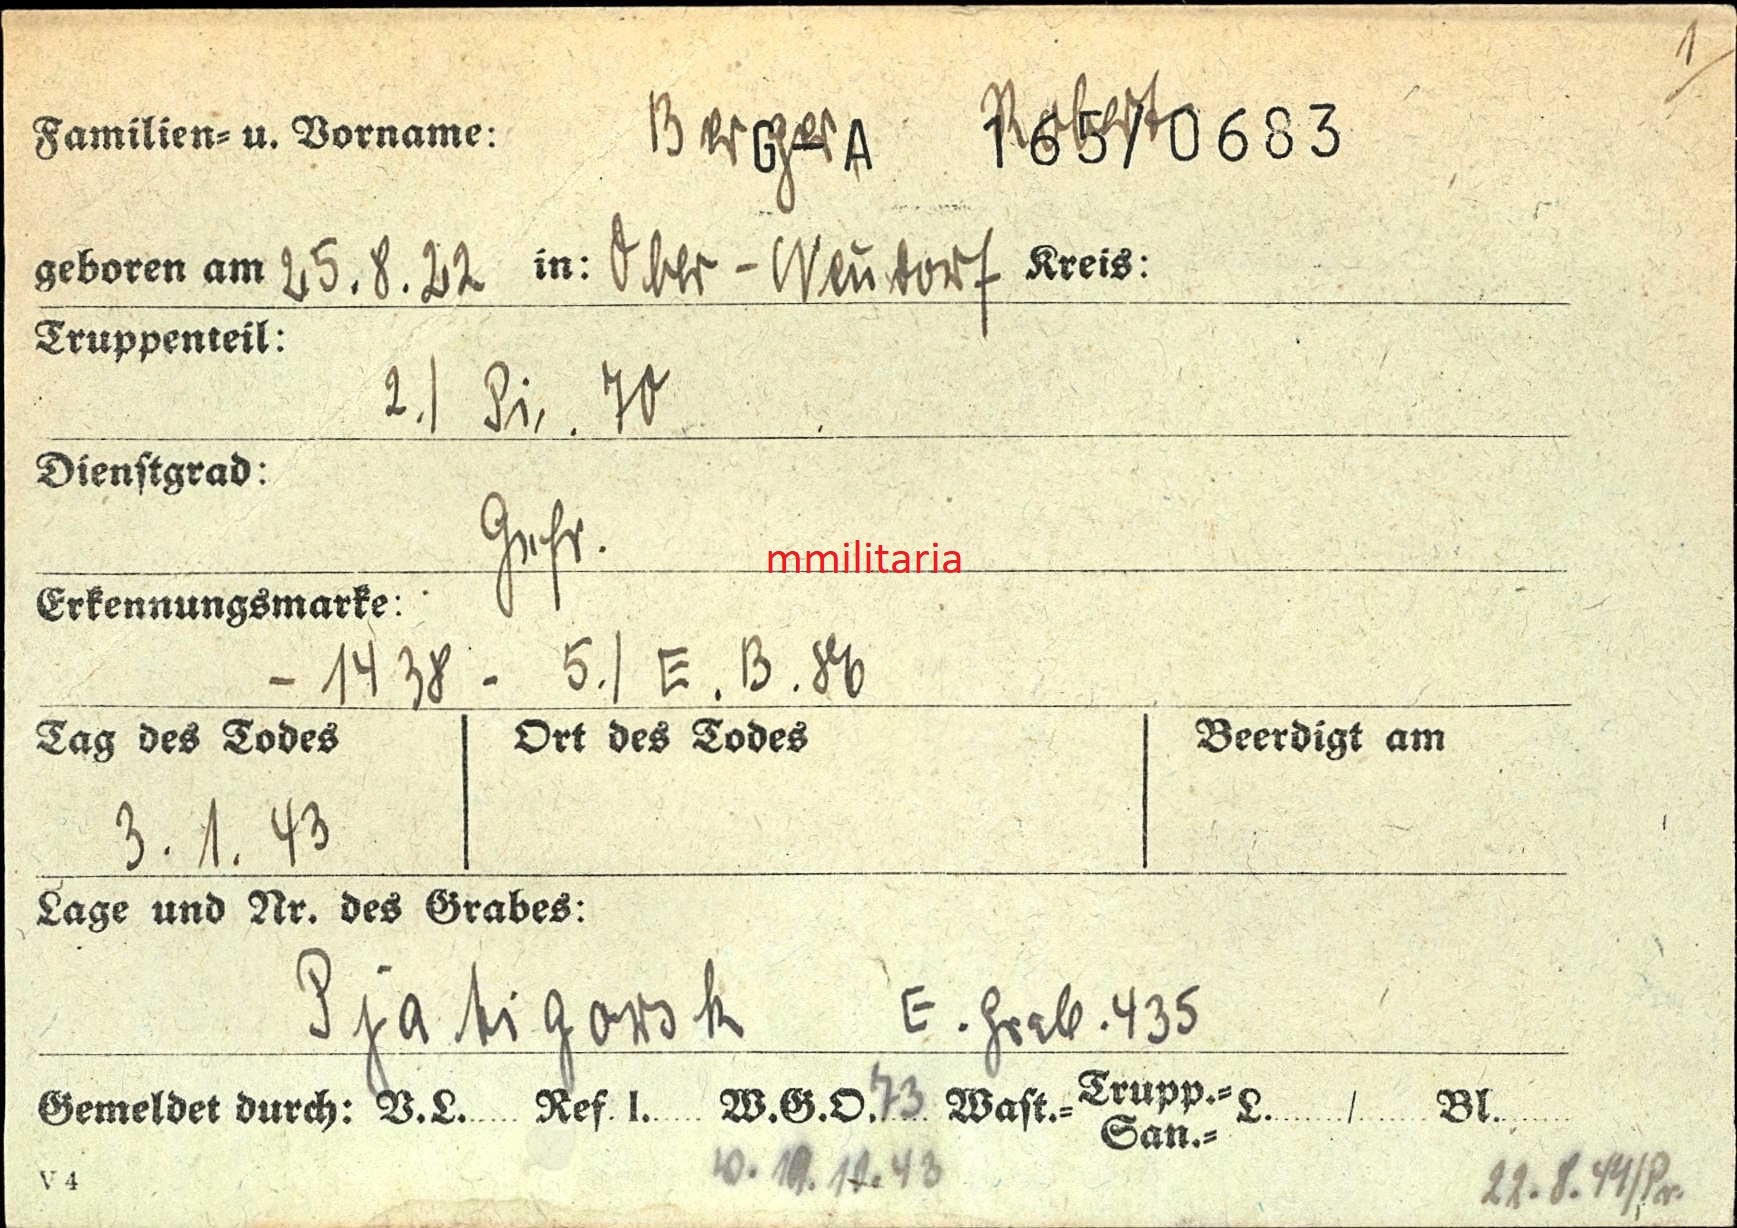 1
Familien= u. Vorname: Berger Robert
G-A 165/0683
geboren am 25.8.22 in: Ober-Neudorf Kreis:
Truppenteil:
2./ Pi. 70
Dienstgrad:
Gefr.
mmilitaria
Erkennungsmarke:
- 1438 - 5./ E. B. 86
Tag des Todes Ort des Todes Beerdigt am
3. 1. 43
Lage und Nr. des Grabes:
Pjatigorsk E. Grab. 435
Gemeldet durch: V.L. Ref. 1. W.G.O. 73 Wast.= Trupp.= San.= L. / Bl.
V 4
22.8.44/Pr.